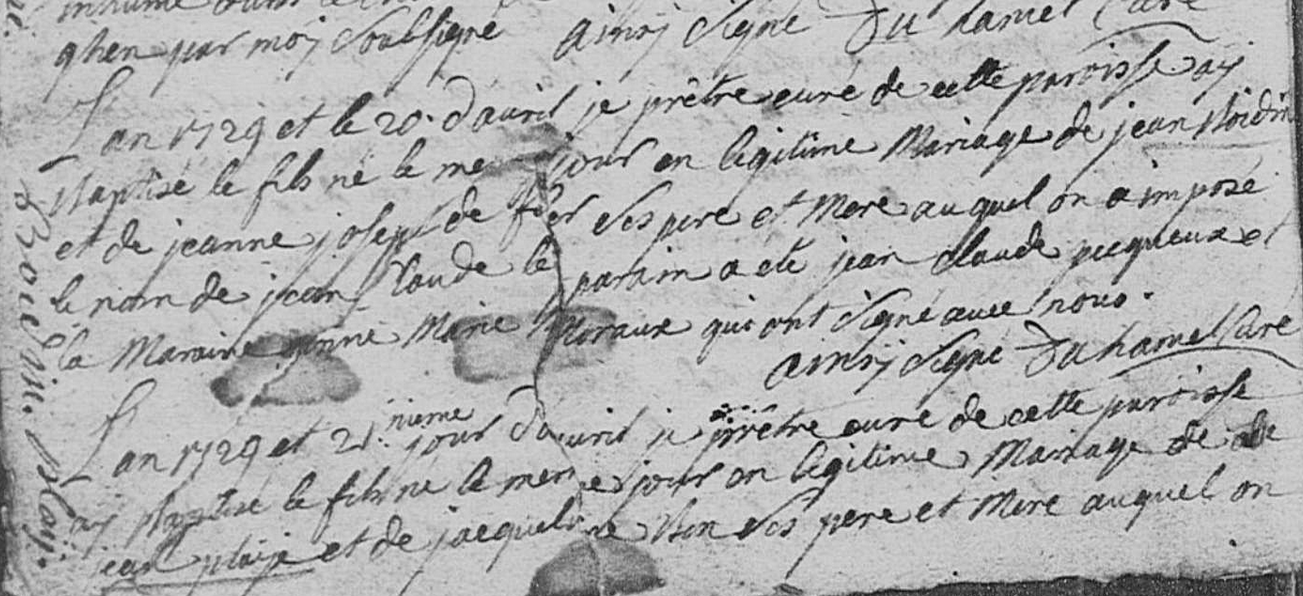 inhumé dans le
ghen par moy soubsigné ainsy signé Du hamel Curé
L'an 1729 et le 20. d'avril je prêtre curé de cette paroisse ay
Baptisé le fils né le me jour en legitime Mariage de jean
et de jeanne joseph de ses pere et Mere auquel on a imposé
le nom de jean Claude le parain a eté jean claude pecqueux et
la Maraine Marie qui ont signé avec nous.
ainsy signé Du hamel Curé
L'an 1729 et 21. nieme jour d'avril je prêtre curé de cette paroisse
ay Baptisé le fils né le meme jour en legitime Mariage de
jean et de jacqueline ses pere et Mere auquel on